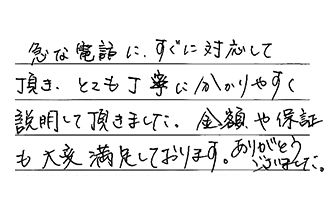 急な電話に、すぐに対応して
頂き、とても丁寧に分かりやすく
説明して頂きました。金額や保証
も大変満足しております。ありがとう
ございました。